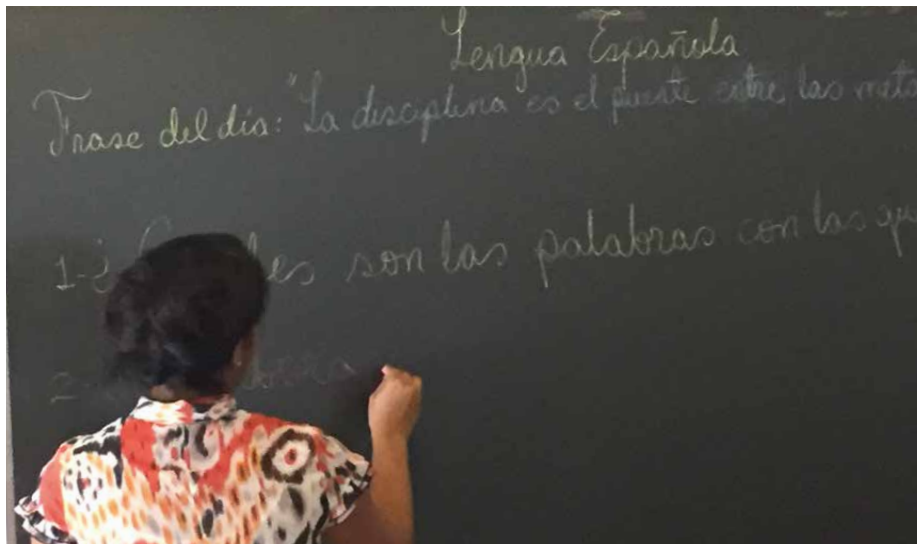 Lengua Española
Frase del día: "La disciplina es el puente entre las meta
1-¿ les son las palabras con las qu
2-